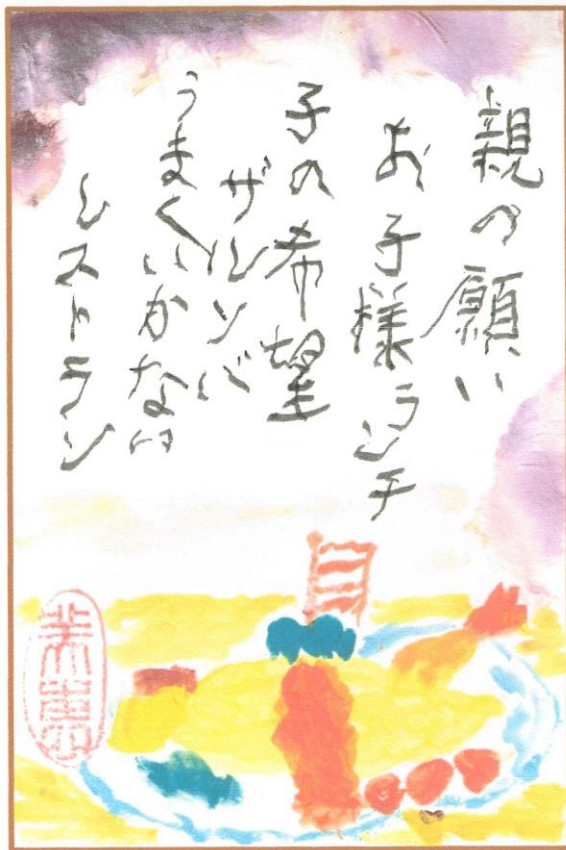 親の願い
お子様ランチ
子の希望
ザルソバ
うまくいかない
レストラン